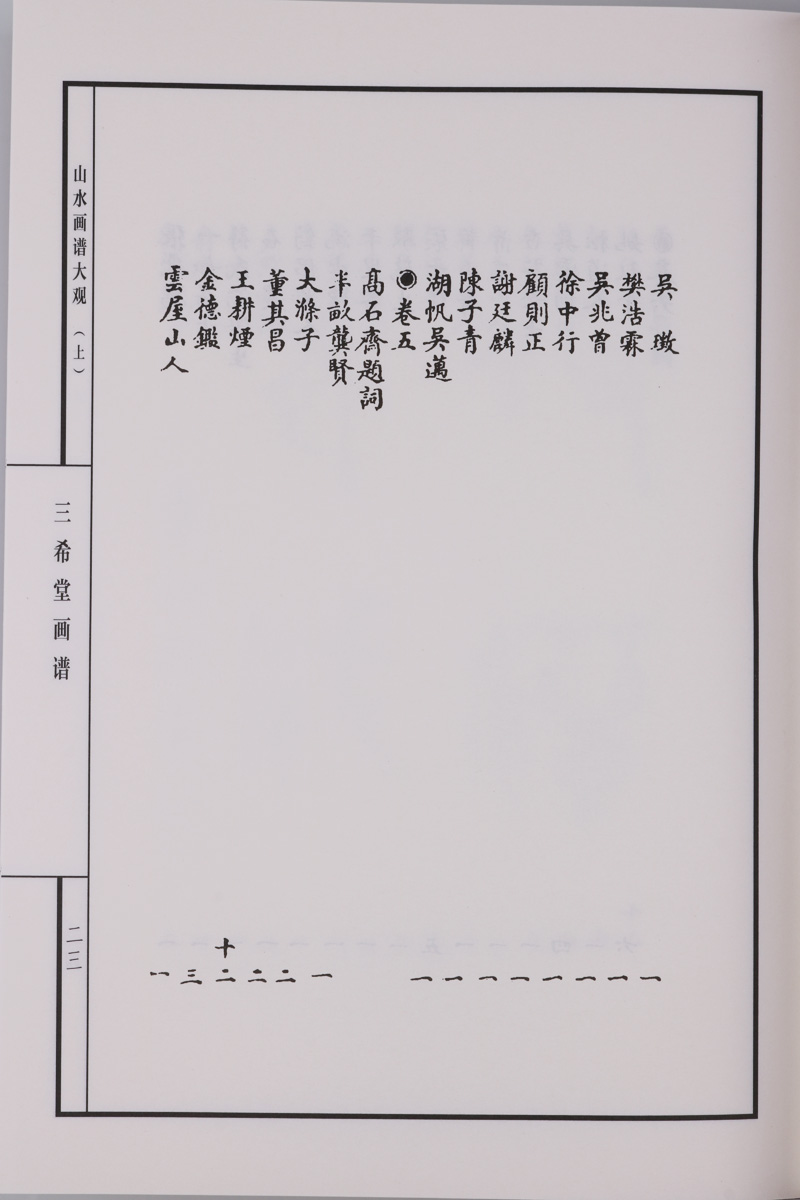 吳 一
樊浩霖 一
吳兆曾 一
徐中行 一
顧則正 一
謝廷麟 一
陳子青 一
湖帆吳邁 一
◉卷五
高石齋題詞
半畝龔賢 一
大滌子 二
董其昌 二
王耕煙 十二
金德鑑 三
雲屋山人 一
山水画谱大观（上）
三希堂画谱
二三